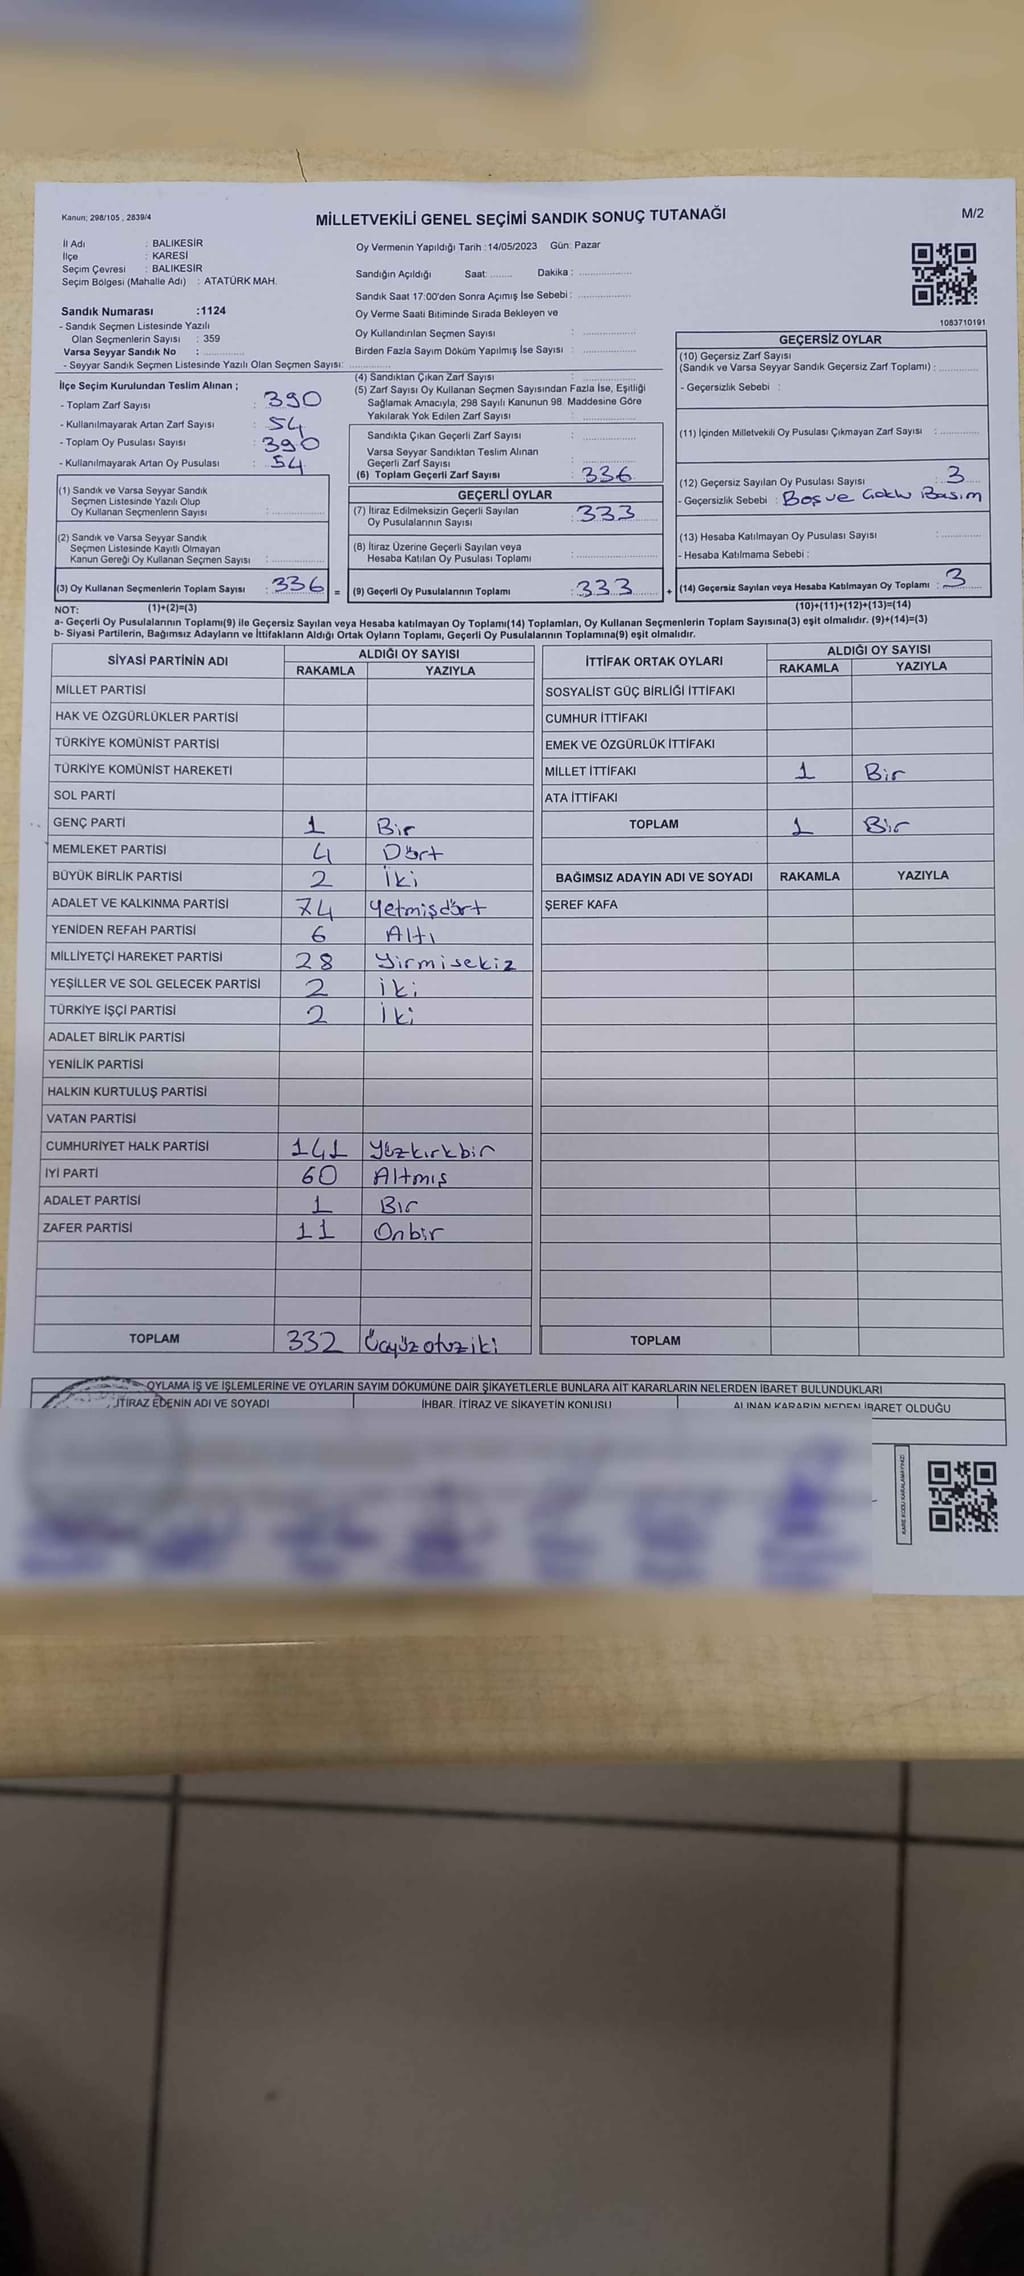 Kanun; 298/105 , 2839/4
MİLLETVEKİLİ GENEL SEÇİMİ SANDIK SONUÇ TUTANAĞI
M/2
İl Adı : BALIKESİR
İlçe : KARESİ
Seçim Çevresi : BALIKESİR
Seçim Bölgesi (Mahalle Adı) : ATATÜRK MAH.
Sandık Numarası :1124
- Sandık Seçmen Listesinde Yazılı
Olan Seçmenlerin Sayısı : 359
Varsa Seyyar Sandık No : ..............
- Seyyar Sandık Seçmen Listesinde Yazılı Olan Seçmen Sayısı: ..............
Oy Vermenin Yapıldığı Tarih :14/05/2023 Gün: Pazar
Sandığın Açıldığı Saat: ........ Dakika : ..................
Sandık Saat 17:00'den Sonra Açımış İse Sebebi : ..................
Oy Verme Saati Bitiminde Sırada Bekleyen ve
Oy Kullandırılan Seçmen Sayısı : ..................
Birden Fazla Sayım Döküm Yapılmış İse Sayısı : ..................
1083710191
İlçe Seçim Kurulundan Teslim Alınan ;
- Toplam Zarf Sayısı : 390
- Kullanılmayarak Artan Zarf Sayısı : 54
- Toplam Oy Pusulası Sayısı : 390
- Kullanılmayarak Artan Oy Pusulası : 54
(1) Sandık ve Varsa Seyyar Sandık
Seçmen Listesinde Yazılı Olup
Oy Kullanan Seçmenlerin Sayısı : ..............
(2) Sandık ve Varsa Seyyar Sandık
Seçmen Listesinde Kayıtlı Olmayan
Kanun Gereği Oy Kullanan Seçmen Sayısı : ..............
(3) Oy Kullanan Seçmenlerin Toplam Sayısı : 336 =
(4) Sandıktan Çıkan Zarf Sayısı : ..................
(5) Zarf Sayısı Oy Kullanan Seçmen Sayısından Fazla İse, Eşitliği
Sağlamak Amacıyla; 298 Sayılı Kanunun 98. Maddesine Göre
Yakılarak Yok Edilen Zarf Sayısı : ..................
Sandıkta Çıkan Geçerli Zarf Sayısı : ..................
Varsa Seyyar Sandıktan Teslim Alınan
Geçerli Zarf Sayısı : ..................
(6) Toplam Geçerli Zarf Sayısı : 336
GEÇERLİ OYLAR
(7) İtiraz Edilmeksizin Geçerli Sayılan
Oy Pusulalarının Sayısı : 333
(8) İtiraz Üzerine Geçerli Sayılan veya
Hesaba Katılan Oy Pusulası Toplamı : ..................
(9) Geçerli Oy Pusulalarının Toplamı : 333 +
GEÇERSİZ OYLAR
(10) Geçersiz Zarf Sayısı
(Sandık ve Varsa Seyyar Sandık Geçersiz Zarf Toplamı) : ..........
- Geçersizlik Sebebi :
(11) İçinden Milletvekili Oy Pusulası Çıkmayan Zarf Sayısı : ..........
(12) Geçersiz Sayılan Oy Pusulası Sayısı : 3
- Geçersizlik Sebebi : Boş ve Çoklu Basım
(13) Hesaba Katılmayan Oy Pusulası Sayısı : ..........
- Hesaba Katılmama Sebebi :
(14) Geçersiz Sayılan veya Hesaba Katılmayan Oy Toplamı : 3
NOT: (1)+(2)=(3) (10)+(11)+(12)+(13)=(14)
a- Geçerli Oy Pusulalarının Toplamı(9) ile Geçersiz Sayılan veya Hesaba katılmayan Oy Toplamı(14) Toplamları, Oy Kullanan Seçmenlerin Toplam Sayısına(3) eşit olmalıdır. (9)+(14)=(3)
b- Siyasi Partilerin, Bağımsız Adayların ve İttifakların Aldığı Ortak Oyların Toplamı, Geçerli Oy Pusulalarının Toplamına(9) eşit olmalıdır.
SİYASİ PARTİNİN ADI ALDIĞI OY SAYISI
RAKAMLA YAZIYLA
MİLLET PARTİSİ
HAK VE ÖZGÜRLÜKLER PARTİSİ
TÜRKİYE KOMÜNİST PARTİSİ
TÜRKİYE KOMÜNİST HAREKETİ
SOL PARTİ
GENÇ PARTİ 1 Bir
MEMLEKET PARTİSİ 4 Dört
BÜYÜK BİRLİK PARTİSİ 2 İki
ADALET VE KALKINMA PARTİSİ 74 Yetmişdört
YENİDEN REFAH PARTİSİ 6 Altı
MİLLİYETÇİ HAREKET PARTİSİ 28 Yirmisekiz
YEŞİLLER VE SOL GELECEK PARTİSİ 2 İki
TÜRKİYE İŞÇİ PARTİSİ 2 İki
ADALET BİRLİK PARTİSİ
YENİLİK PARTİSİ
HALKIN KURTULUŞ PARTİSİ
VATAN PARTİSİ
CUMHURİYET HALK PARTİSİ 141 Yüzkırkbir
İYİ PARTİ 60 Altmış
ADALET PARTİSİ 1 Bir
ZAFER PARTİSİ 11 Onbir
TOPLAM 332 Üçyüz otuz iki
İTTİFAK ORTAK OYLARI ALDIĞI OY SAYISI
RAKAMLA YAZIYLA
SOSYALİST GÜÇ BİRLİĞİ İTTİFAKI
CUMHUR İTTİFAKI
EMEK VE ÖZGÜRLÜK İTTİFAKI
MİLLET İTTİFAKI 1 Bir
ATA İTTİFAKI
TOPLAM 1 Bir
BAĞIMSIZ ADAYIN ADI VE SOYADI RAKAMLA YAZIYLA
ŞEREF KAFA
TOPLAM
OYLAMA İŞ VE İŞLEMLERİNE VE OYLARIN SAYIM DÖKÜMÜNE DAİR ŞİKAYETLERLE BUNLARA AİT KARARLARIN NELERDEN İBARET BULUNDUKLARI
İTİRAZ EDENİN ADI VE SOYADI İHBAR, İTİRAZ VE ŞİKAYETİN KONUSU ALINAN KARARIN NEDEN İBARET OLDUĞU
KARE KODU KARALAMAYINIZ!